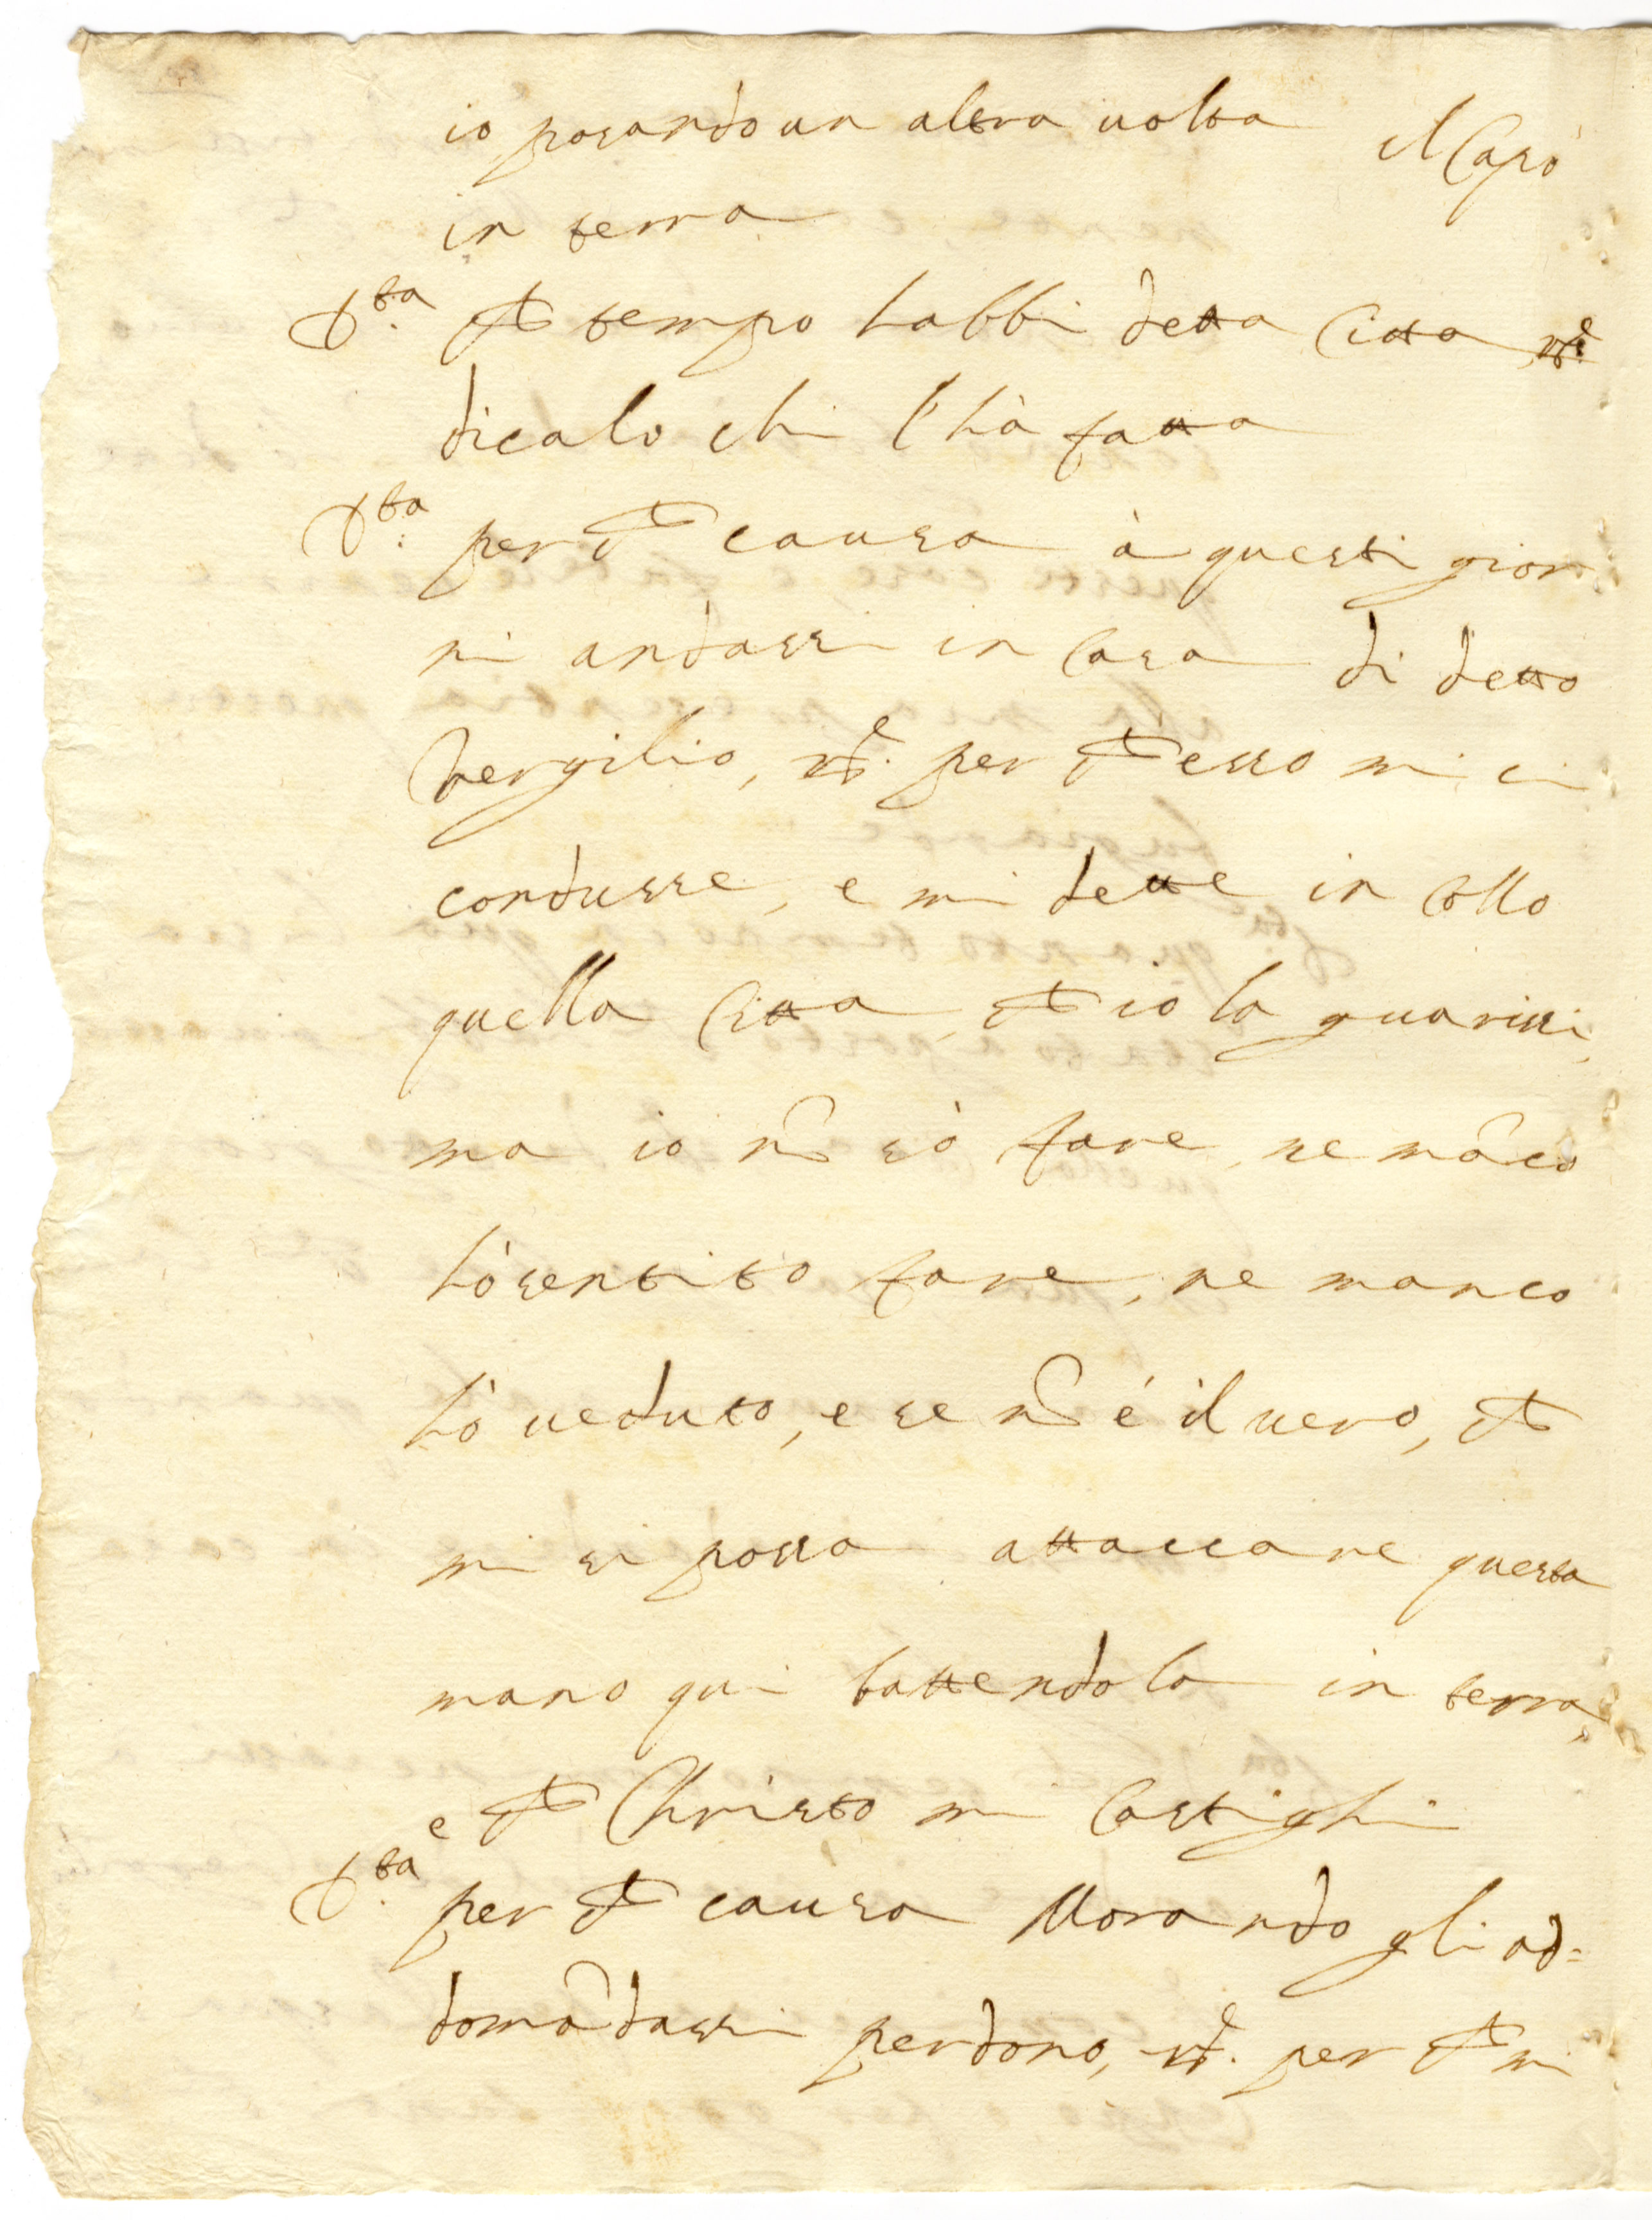 io posando un altra uolta il Capo
in terra
Dta. che tempo habbi detta Citta, Rde.
dicalo chi l'hà fatta
Dta: per che causa à questi gior
ni andassi in Casa di detto
Vergilio, Rde. per che esso mi ci
condusse, e mi dette in Collo
quella Citta che io la guarissi,
ma io nõ sò fare, ne mãco
hò sentito fare, ne manco
hò ueduto, e se nõ é il uero, che
mi si possa attaccare questa
mano qui battendola in terra,
e che Christo mi Castighi
Dta. per che causa Morando gli ad=
domãdassi perdono, Rde. per che mi